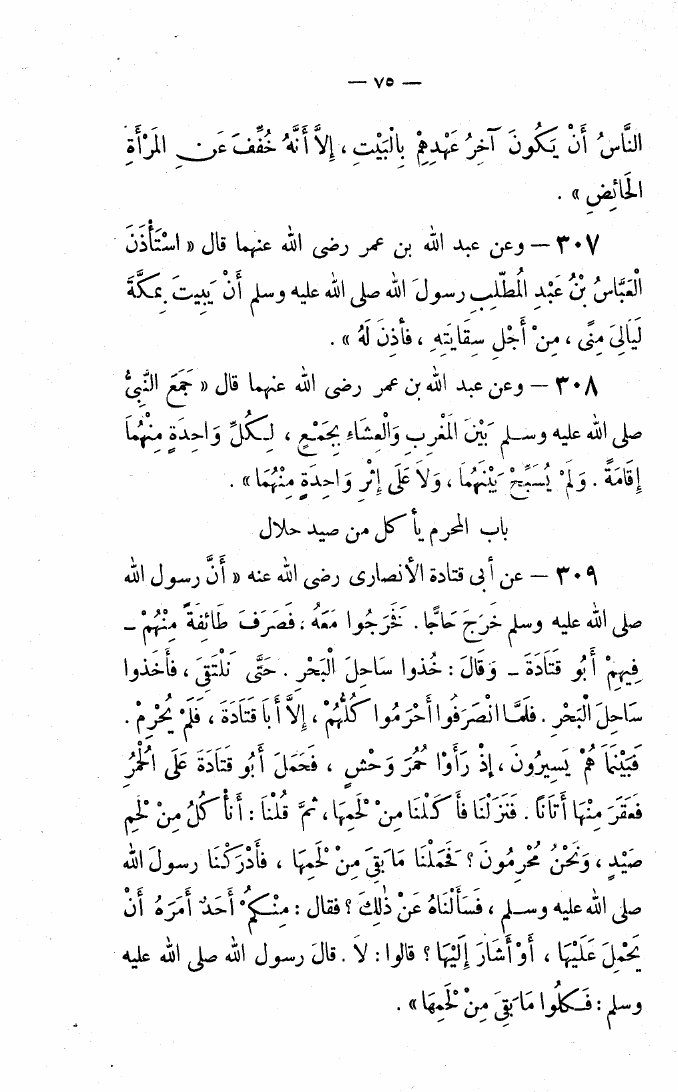 — ٧٥ —
النَّاسُ أَنْ يَكُونَ آخِرُ عَهْدِهِمْ بِالْبَيْتِ ، إِلاَّ أَنَّهُ خُفِّفَ عَنِ المَرْأَةِ
الحَائِضِ » .
٣٠٧ — وعن عبد الله بن عمر رضى الله عنهما قال « اسْتَأْذَنَ
الْعَبَّاسُ بْنُ عَبْدِ المُطَّلِبِ رسولَ الله صلى الله عليه وسلم أَنْ يَبِيتَ بِمَكَّةَ
لَيَالِىَ مِنًى ، مِنْ أَجْلِ سِقَايَتِهِ ، فأَذِنَ لَهُ » .
٣٠٨ — وعن عبد الله بن عمر رضى الله عنهما قال « جَمَعَ النَّبِىُّ
صلى الله عليه وسلم بَيْنَ المَغْرِبِ وَالْعِشَاءِ بِجَمْعٍ ، لِكُلِّ وَاحِدَةٍ مِنْهُمَا
إِقَامَةً . وَلَمْ يُسَبِّحْ بَيْنَهُمَا ، وَلاَ عَلَى إِثْرِ وَاحِدَةٍ مِنْهُمَا » .
باب المحرم يأكل من صيد حلال
٣٠٩ — عن أبى قتادة الأنصارى رضى الله عنه « أَنَّ رسول الله
صلى الله عليه وسلم خَرَجَ حَاجًّا . خَفَرَجُوا مَعَهُ ، فَصَرَفَ طَائِفَةً مِنْهُمْ –
فِيهِمْ أَبُو قَتَادَةَ – وَقَالَ : خُذُوا سَاحِلَ الْبَحْرِ . حَتَّى نَلْتَقِىَ ، فَأَخَذُوا
سَاحِلَ الْبَحْرِ . فَلَمَّا انْصَرَفُوا أَحْرَمُوا كُلُّهُمْ ، إِلاَّ أَبَا قَتَادَةَ ، فَلَمْ يُحْرِمْ .
فَبَيْنَمَا هُمْ يَسِيرُونَ ، إِذْ رَأَوْا حُمُرَ وَحْشٍ ، فَحَمَلَ أَبُو قَتَادَةَ عَلَى الْحُمُرُ
فَعَقَرَ مِنْهَا أَتَانًا . فَنَزَلْنَا فَأَكَلْنَا مِنْ لَحْمِهَا ، ثُمَّ قُلْنَا : أَنَأْكُلُ مِنْ لَحْمِ
صَيْدٍ ، وَنَحْنُ مُحْرِمُونَ ؟ فَحَمَلْنَا مَا بَقِىَ مِنْ لَحْمِهَا ، فَأَدْرَكْنَا رسولَ الله
صلى الله عليه وسلم ، فَسَأَلْنَاهُ عَنْ ذٰلِكَ ؟ فقال : مِنْكُمْ أَحَدٌ أَمَرَهُ أَنْ
يَحْمِلَ عَلَيْهَا ، أَوْ أَشَارَ إِلَيْهَا ؟ قالوا : لاَ . قالَ رسول الله صلى الله عليه
وسلم : فَكُلُوا مَا بَقِىَ مِنْ لَحْمِهَا » .